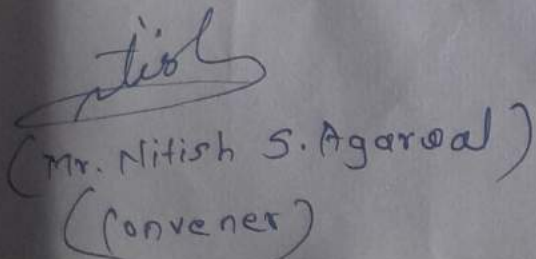 (Mr. Nitish S. Agarwal)
(Convener)